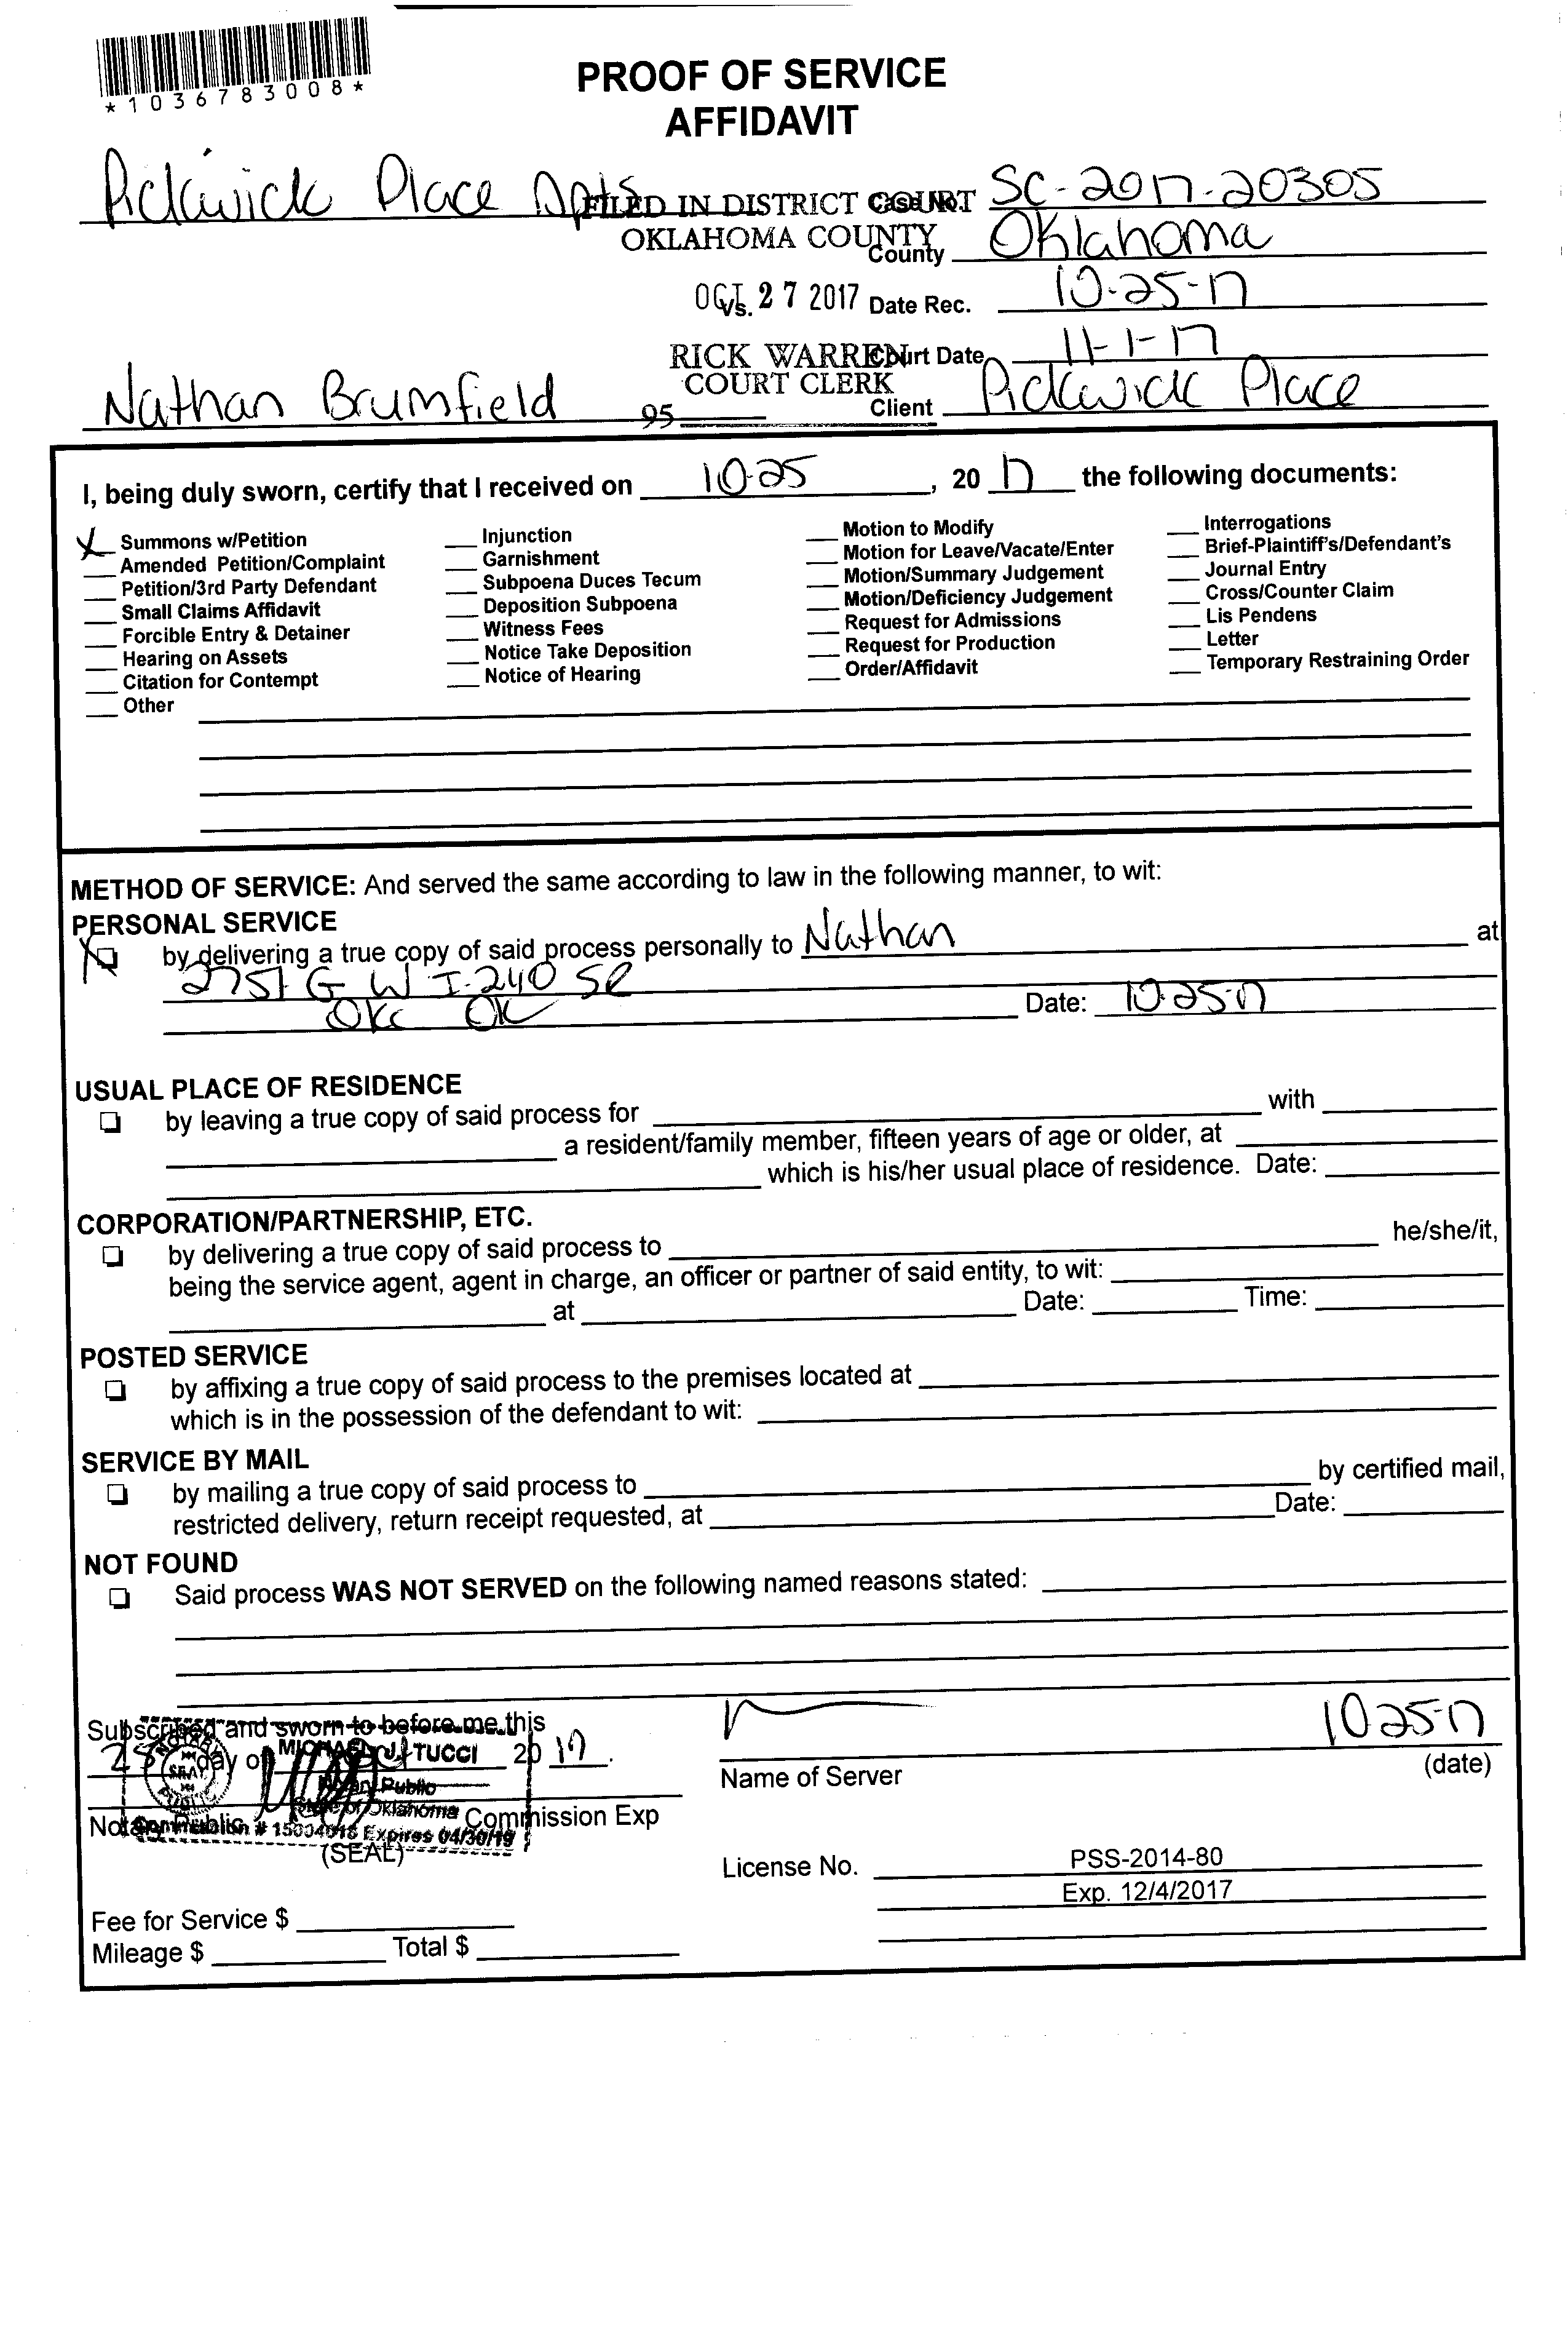 *1036783008*
PROOF OF SERVICE
AFFIDAVIT
Pickwick Place Apts
FILED IN DISTRICT COURT
OKLAHOMA COUNTY
Case No. SC-2017-20305
County Oklahoma
OCT 27 2017
vs.
Date Rec. 10-25-17
RICK WARREN
COURT CLERK
Court Date 11-1-17
Nathan Brumfield
95
Client Pickwick Place
I, being duly sworn, certify that I received on 10-25, 20 17 the following documents:
X Summons w/Petition
Amended Petition/Complaint
Petition/3rd Party Defendant
Small Claims Affidavit
Forcible Entry & Detainer
Hearing on Assets
Citation for Contempt
Other
Injunction
Garnishment
Subpoena Duces Tecum
Deposition Subpoena
Witness Fees
Notice Take Deposition
Notice of Hearing
Motion to Modify
Motion for Leave/Vacate/Enter
Motion/Summary Judgement
Motion/Deficiency Judgement
Request for Admissions
Request for Production
Order/Affidavit
Interrogations
Brief-Plaintiff's/Defendant's
Journal Entry
Cross/Counter Claim
Lis Pendens
Letter
Temporary Restraining Order
METHOD OF SERVICE: And served the same according to law in the following manner, to wit:
PERSONAL SERVICE
X by delivering a true copy of said process personally to Nathan at
2751 G W I-240 SR
OKC OK Date: 10-25-17
USUAL PLACE OF RESIDENCE
by leaving a true copy of said process for with
a resident/family member, fifteen years of age or older, at
which is his/her usual place of residence. Date:
CORPORATION/PARTNERSHIP, ETC.
by delivering a true copy of said process to he/she/it,
being the service agent, agent in charge, an officer or partner of said entity, to wit:
at Date: Time:
POSTED SERVICE
by affixing a true copy of said process to the premises located at
which is in the possession of the defendant to wit:
SERVICE BY MAIL
by mailing a true copy of said process to by certified mail,
restricted delivery, return receipt requested, at Date:
NOT FOUND
Said process WAS NOT SERVED on the following named reasons stated:
Subscribed and sworn to before me this
day of 20 17.
TUCCI
Notary Public
State of Oklahoma
Expires 04/30/19
Notary Public Commission Exp
(SEAL)
10-25-17
Name of Server (date)
License No. PSS-2014-80
Exp. 12/4/2017
Fee for Service $
Mileage $ Total $